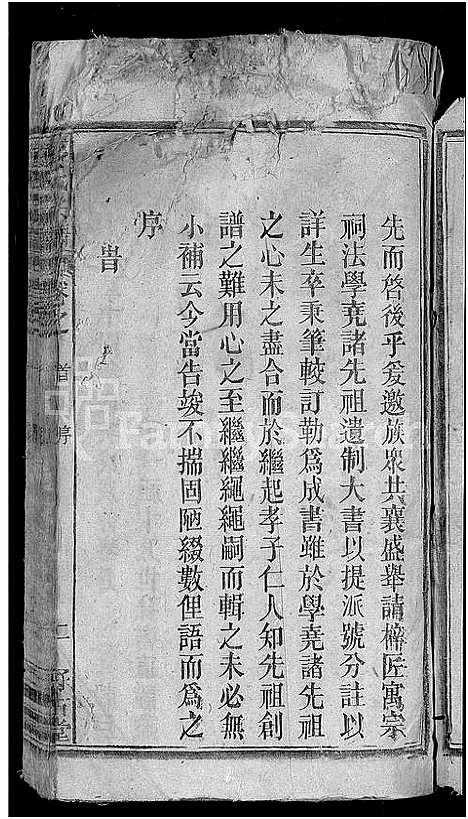 先而啓後乎爰邀族眾共襄盛舉請梓匠寓宗
祠法學堯諸先祖遺制大書以提派號分註以
詳生卒秉筆較訂勒為成書雖於學堯諸先祖
之心未之盡合而於繼起孝子仁人知先祖創
譜之難用心之至繼繼繩繩嗣而輯之未必無
小補云今當告竣不揣固陋綴數俚語而為之
序
首 序